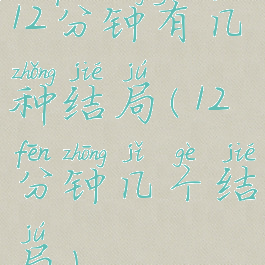 12分钟有几
zhǒng jié jú
种结局(12
fēn zhōng jǐ gè jié
分钟几个结
jú
局)